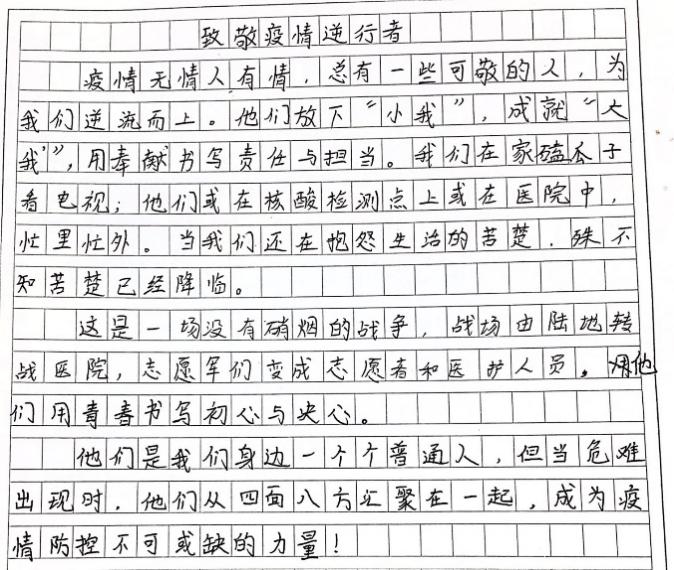 致敬疫情逆行者
疫情无情人有情,总有一些可敬的人,为
我们逆流而上。他们放下“小我”,成就“大
我”,用奉献书写责任与担当。我们在家嗑瓜子
看电视;他们或在核酸检测点上或在医院中,
忙里忙外。当我们还在抱怨生活的苦楚,殊不
知苦楚已经降临。
这是一场没有硝烟的战争,战场由陆地转
战医院,志愿军们变成志愿者和医护人员。他
们用青春书写初心与决心。
他们是我们身边一个个普通人,但当危难
出现时,他们从四面八方汇聚在一起,成为疫
情防控不可或缺的力量!